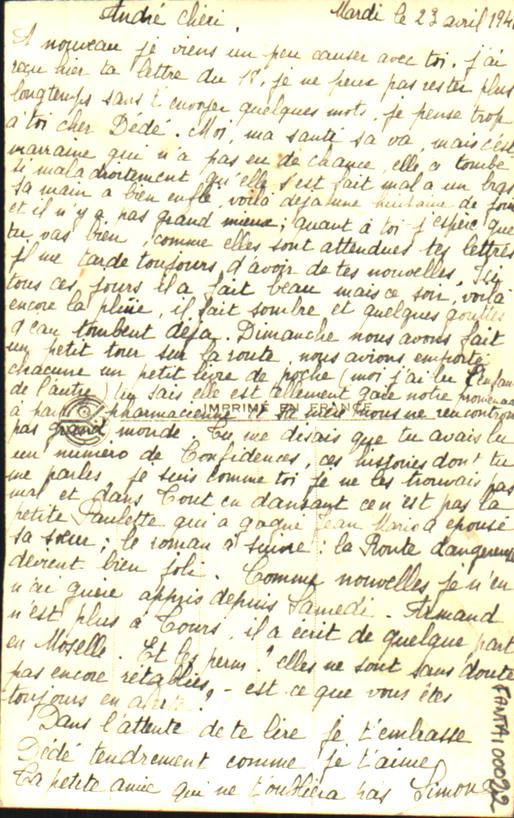 André chéri, Mardi le 23 avril 194
A nouveau je viens un peu causer avec toi, j'ai
reçu hier ta lettre du 18, je ne peux pas rester plus
longtemps sans t'envoyer quelques mots, je pense trop
à toi cher Dédé. Moi, ma santé sa va, mais c'est
marraine qui n'a pas eu de chance, elle a tombé
si maladroitement qu'elle s'est fait mal a un bras
sa main a bien enflé, voilà déjà une huitaine de jours
et il n'y a pas grand mieux; quant à toi j'espère que
tu vas bien, comme elles sont attendues tes lettres
il me tarde toujours d'avoir de tes nouvelles. Ici
tous ces jours il a fait beau mais ce soir, voilà
encore la pluie, il fait sombre et quelques gouttes
d'eau tombent déjà. Dimanche nous avons fait
un petit tour sur la route, nous avions emporté
chacune un petit livre de poche (moi j'ai lu l'enfant
de l'autre) tu sais elle est tellement gaie notre promenade
à part pharmacienne nous ne rencontrons
IMPRIMÉ EN FRANCE
pas grand monde. Tu me disais que tu avais lu
un numéro de Confidences, ces histoires dont tu
me parles, je suis comme toi je ne les trouvais pas
mal et dans Tout en dansant ce n'est pas la
petite Paulette qui a gagné Jean Mario a épousé
sa sœur; le roman à suivre: la Route dangereuse
devient bien joli. Comme nouvelles je n'en
n'ai guère appris depuis Samedi. Armand
n'est plus à Tours, il a écrit de quelque part
en Moselle. Et les perm? elles ne sont sans doute
pas encore rétablies, - est ce que vous êtes
toujours en alerte?
Dans l'attente de te lire je t'embrasse
Dédé tendrement comme je t'aime
Ta petite amie qui ne t'oubliera pas Simone
FANTAI00022